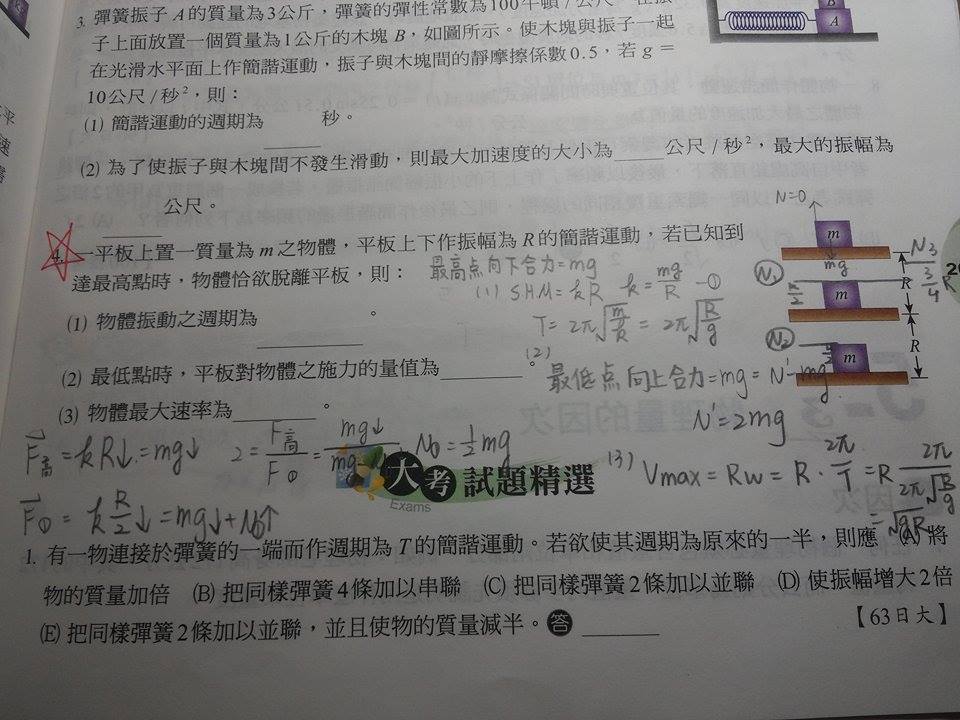 3. 彈簧振子A的質量為3公斤,彈簧的彈性常數為100牛頓/公尺
子上面放置一個質量為1公斤的木塊B,如圖所示。使木塊與振子一起
在光滑水平面上作簡諧運動,振子與木塊間的靜摩擦係數0.5,若g=
10公尺/秒²,則:
(1) 簡諧運動的週期為______秒。
(2) 為了使振子與木塊間不發生滑動,則最大加速度的大小為_____公尺/秒²,最大的振幅為
______公尺。
B
A
4. 一平板上置一質量為m之物體,平板上下作振幅為R的簡諧運動,若已知到
達最高點時,物體恰欲脫離平板,則:
最高点向下合力=mg
(1) 物體振動之週期為__________。
(1) SHM=kR k=mg/R -①
T=2π√(m/k)=2π√(R/g)
(2) 最低點時,平板對物體之施力的量值為________。
(2)
最低点向上合力=mg=N'-mg
N'=2mg
(3) 物體最大速率為________。
N=0
m
mg
N₁
m
N₂
m
R
R
N₃
3/4 R
R/2
F高=kR↓=mg↓ 2=F高/F①=mg↓/mg N₀=½mg
F①=k R/2↓=mg↓+N₀↑
(3) Vmax=Rw=R·2π/T=R 2π/2π√(R/g)
=√gR
大考試題精選
Exams
1. 有一物連接於彈簧的一端而作週期為T的簡諧運動。若欲使其週期為原來的一半,則應 (A) 將
物的質量加倍 (B) 把同樣彈簧4條加以串聯 (C) 把同樣彈簧2條加以並聯 (D) 使振幅增大2倍
(E) 把同樣彈簧2條加以並聯,並且使物的質量減半。答________
【63日大】